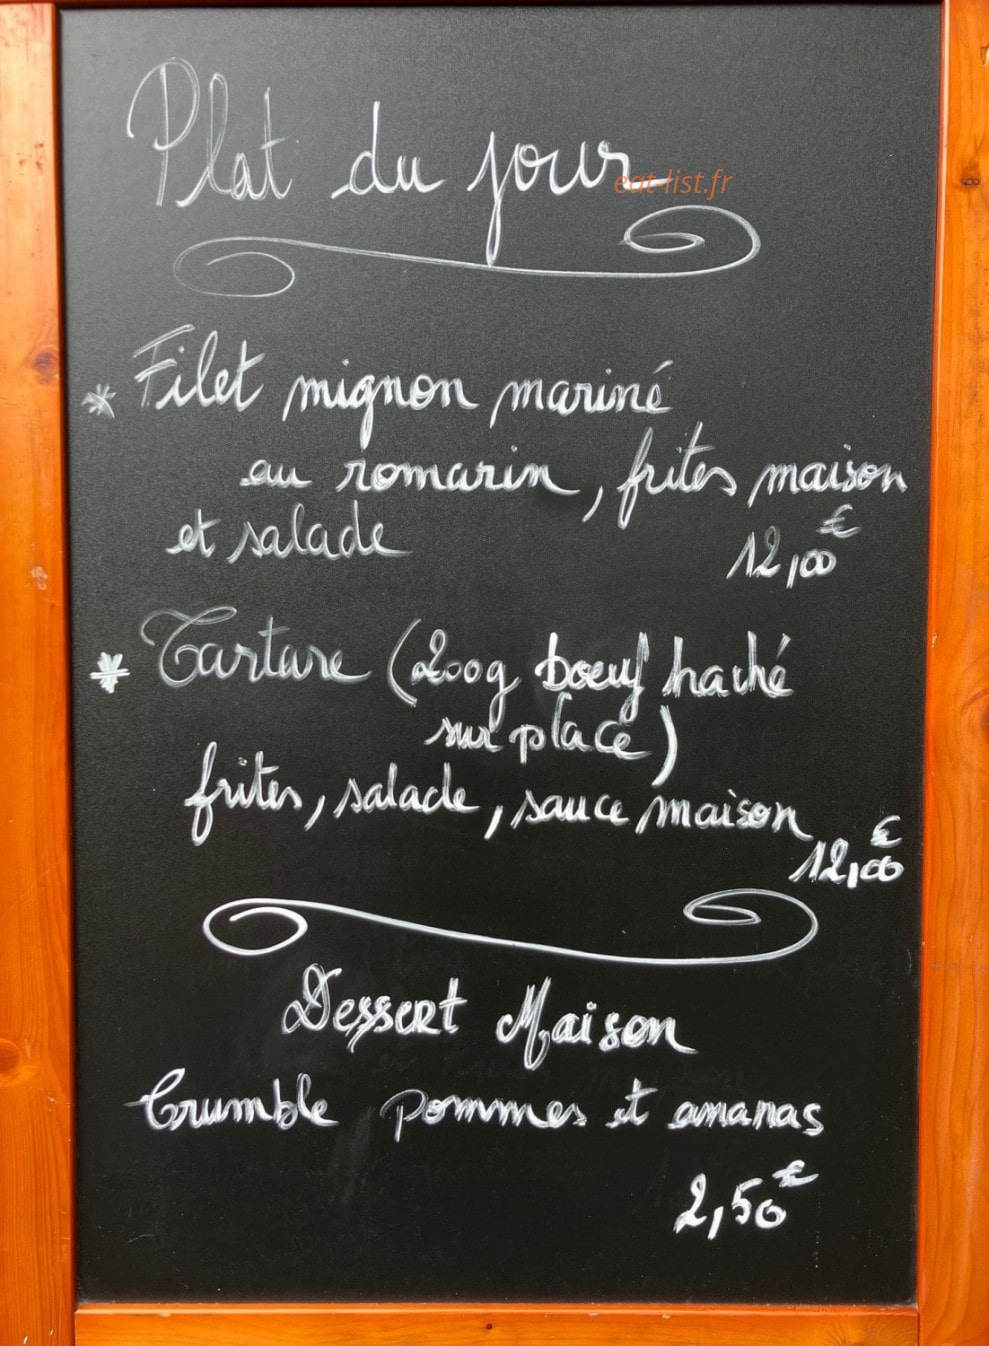 Plat du jour
eat-list.fr
* Filet mignon mariné
au romarin, frites maison
et salade
12,00€
* Tartare (200g boeuf haché
sur place)
frites, salade, sauce maison
12,00€
Dessert Maison
Crumble pommes et ananas
2,50€